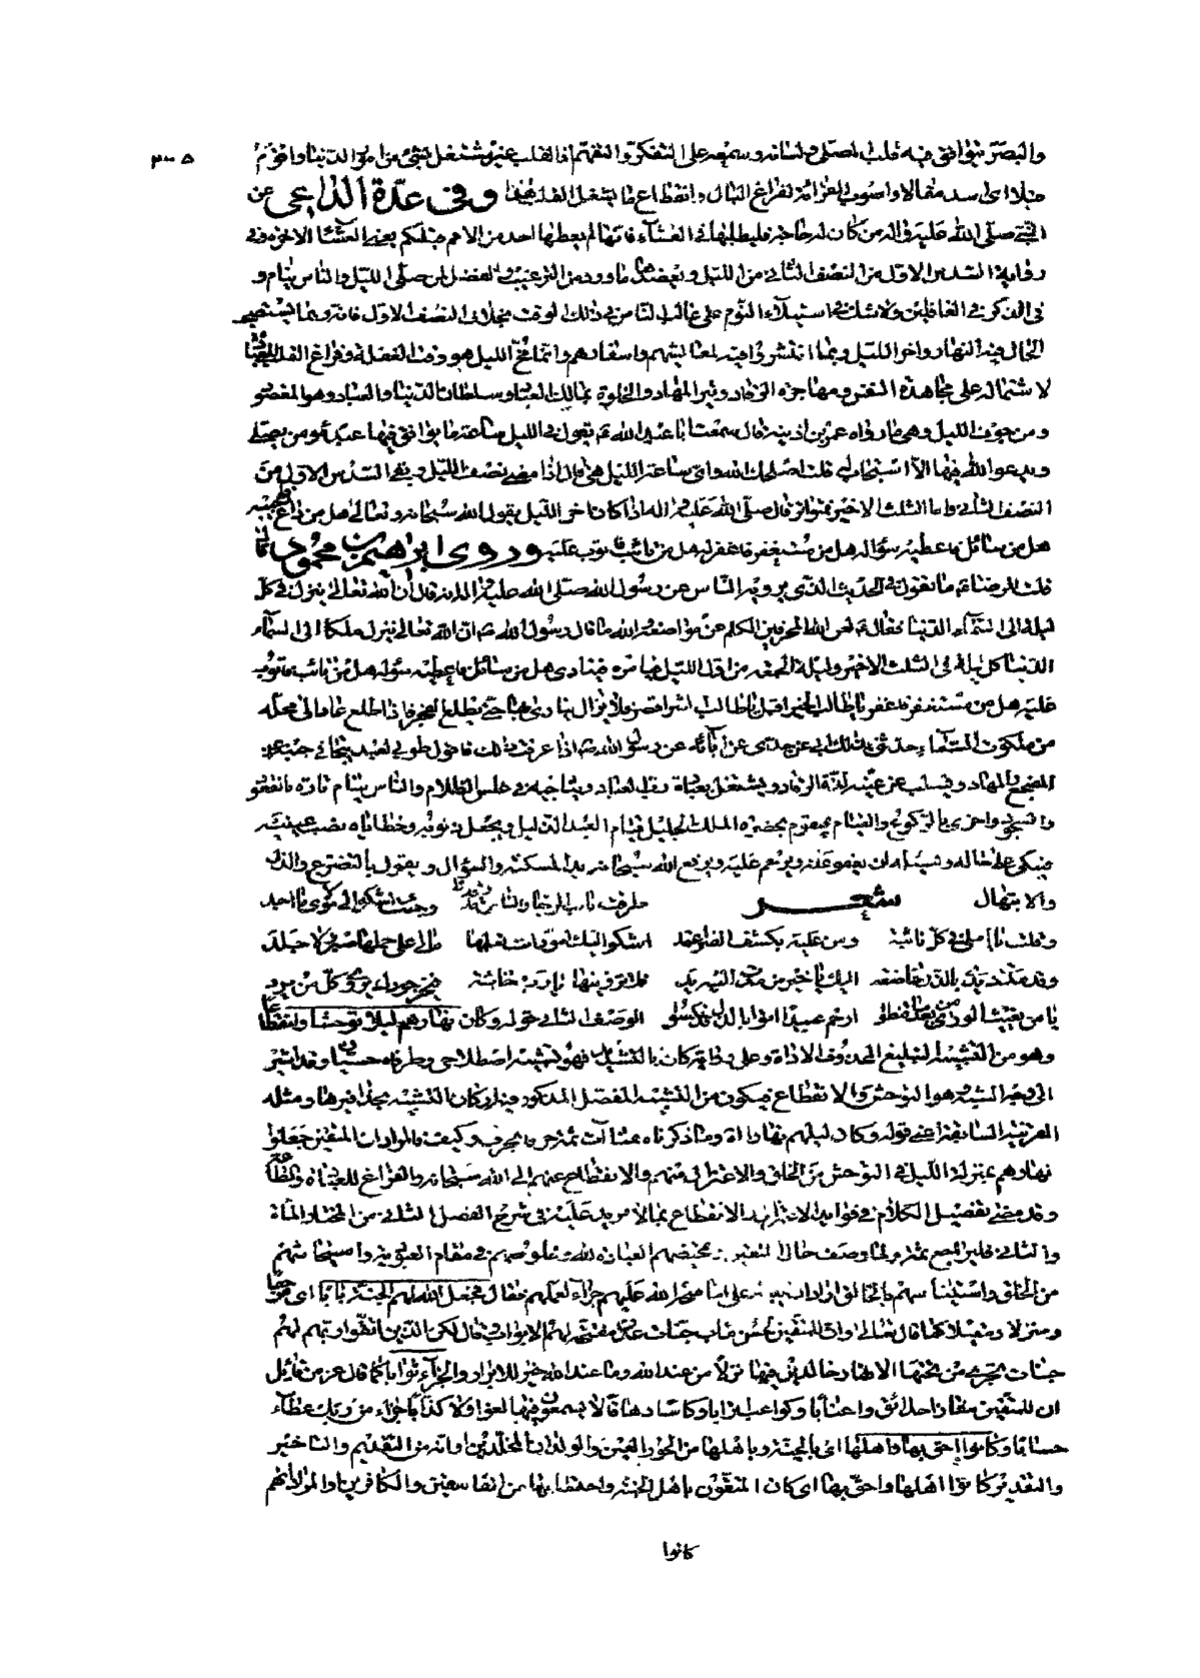 ٣٠٥
والبصر فيوافق فيه قلب المصلي ولسانه وسمعه على التفكر والتفهم اذ القلب غير مشتغل بشيء من امور الدنيا واقوم
قيلا اي اسد مقالا واصوب القراءة لفراغ البال وانقطاع ما يشغل القلب وفي عدة الداعي عن
النبي صلى الله عليه وآله من كان له حاجة فليطلبها في العشاء فانها لم يعطها احد من الامم قبلكم يعني العشاء الاخرة وفي
رواية السدس الاول من النصف الثاني من الليل ويعضده ما ورد من الترغيب والفضل لمن صلى الليل والناس نيام و
في الذكر في الغافلين ولا شك في استيلاء النوم على غالب الناس في ذلك الوقت بخلاف النصف الاول فانه ربما يستصحب
الحال فيه النهار وآخر الليل ربما انتشروا فيه لمعايشهم واسفارهم وانما مخ الليل هو وقت الغفلة وفراغ القلب للعبادة
لاشتماله على مجاهدة النفس ومهاجرة الرقاد ووثير المهاد والخلوة بمالك العباد وسلطان الدنيا والمعاد وهو المقصود
من جوف الليل وهي ما رواه عمر بن اذينة قال سمعت ابا عبد الله ع يقول ان في الليل ساعة ما يوافق فيها عبد مؤمن يصلي
ويدعو الله فيها الا استجاب له قلت اصلحك الله واي ساعة الليل هي قال اذا مضى نصف الليل وبقي السدس الاول من
النصف الثاني واما الثلث الاخير فمتواتر قال صلى الله عليه وآله اذا كان آخر الليل يقول الله سبحانه وتعالى هل من داع فاجيبه
هل من سائل فاعطيه سؤله هل من مستغفر فاغفر له هل من تائب فاتوب عليه وروى ابراهيم بن محمود قال
قلت للرضا ع ما تقول في الحديث الذي يرويه الناس عن رسول الله صلى الله عليه وآله انه قال ان الله تعالى ينزل في كل
ليلة الى السماء الدنيا فقال ع لعن الله المحرفين الكلم عن مواضعه والله ما قال رسول الله ص ان الله تعالى ينزل ملكا الى السماء
الدنيا كل ليلة في الثلث الاخير وليلة الجمعة من اول الليل فيامره فينادي هل من سائل فاعطيه سؤله هل من تائب فاتوب
عليه هل من مستغفر فاغفر له يا طالب الخير اقبل يا طالب الشر اقصر فلا يزال ينادي بها حتى يطلع الفجر فاذا طلع عاد الى محله
من ملكوت السماء حدثني بذلك ابي عن جدي عن آبائه عن رسول الله ص اذا عرفت ذلك فاقول طوبى لعبد يتجافى جنبه عن
المضجع والمهاد ويسلب عن عينه لذة الرقاد ويشتغل بعبادة رب العباد ويناجيه في غلس الظلام والناس نيام تارة بالقعود
والسجود واخرى بالركوع والقيام يقوم بحضرة الملك الجليل قيام العبد الذليل ويجعل ذنوبه وخطاياه نصب عينيه
فيبكي على حاله ويسئله ان يعفو عنه ويرحم عليه ويرفع الى الله سبحانه يد المسكنة والسؤال ويقول بالتضرع والذل
والابتهال شعر طرقت باب الرجا والناس قد رقدوا وجئت اشكو الى مولاي ما اجد
وقلت يا املي في كل نائبة ومن عليه بكشف الضر اعتمد اشكو اليك امورا انت تعلمها مالي على حملها صبر ولا جلد
وقد مددت يدي بالذل خاضعة اليك يا خير من مدت اليه يد فلا تردنها يا رب خائبة فبحر جودك يروي كل من يرد
يا من يغيث الورى من بعد ما قنطوا ارحم عبيدا الوصف الثاني قوله وكان نهارهم ليلا توحشا وانقطاعا
وهو من التشبيه البليغ المحذوف الاداة وعلى رواية كان بالتشديد فهو تشبيه اصطلاحي وطرفاه حسيان وقد اشير
الى وجه الشبه هو التوحش والانقطاع فيكون من التشبيه المفصل المذكور فيه اركان التشبيه بحذافيرها ومثله
القرينة السابقة اعني قوله وكان ليلهم نهارا وما ذكرناه هنا آت ثمة وكيف فالمراد ان المتقين جعلوا
نهارهم بمنزلة الليل في التوحش من الخلق والاعتزال منهم والانقطاع عنهم الى الله سبحانه والفراغ للعبادة والطاعة
وقد مضى تفصيل الكلام في فوايد الانقطاع بما لا مزيد عليه في شرح الفصل الثاني من المختار المأة
والثاني فليراجع ثمة ولما وصف حال المتقين وتمحيضهم العبادة لله وخلوصهم في مقام العبودية واستيحاشهم
من الخلق واستيناسهم بالخالق اردف ذلك على ما من الله عليهم جزاء لعملهم فقال فجعل الله لهم الجنة مآبا اي مرجعا
ومنزلا ومقيلا كما قال تعالى وان للمتقين لحسن مآب جنات عدن مفتحة لهم الابواب وقال لكن الذين اتقوا ربهم لهم
جنات تجري من تحتها الانهار خالدين فيها نزلا من عند الله وما عند الله خير للابرار والجزاء ثوابا كما قال عز من قائل
ان للمتقين مفازا حدائق واعنابا وكواعب اترابا وكاسا دهاقا لا يسمعون فيها لغوا ولا كذابا جزاء من ربك عطاء
حسابا وكانوا احق بها واهلها اي بالجنة وباهلها من الحور العين والولدان المخلدين او انه من التقديم والتاخير
والتقدير كانوا اهلها واحق بها اي كان المتقون باهل الجنة واحقاء بها من الفاسقين والكافرين والمراد انهم
كانوا